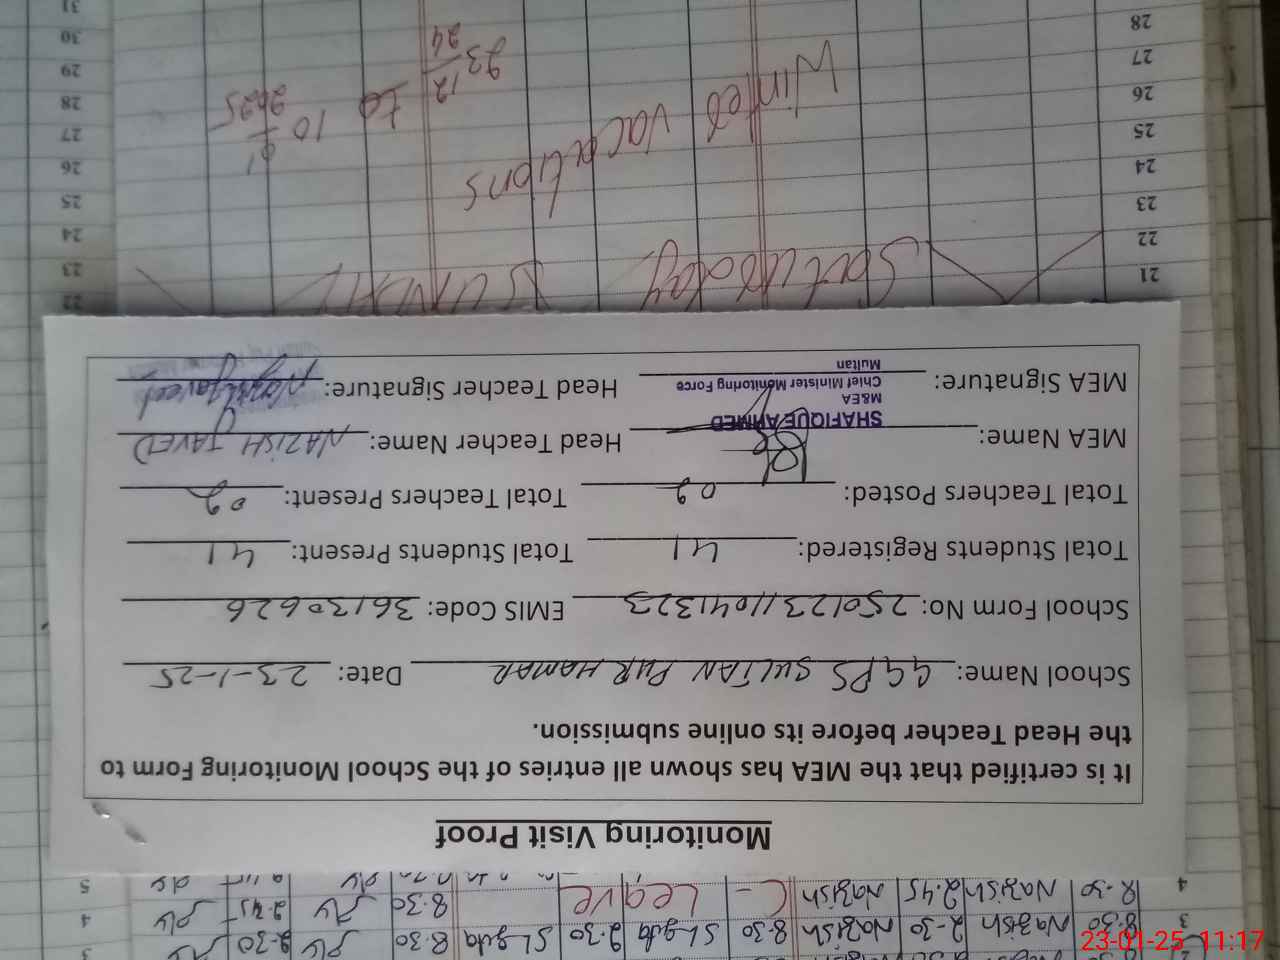 3
8.30 Nazish 2-30 Nazish 8-30 Slgda 2.30 Slgda 8.30 2-30
4
8.30 Nazish 2.45 Nazish C- Leave 8.30 2.45
5
Monitoring Visit Proof
It is certified that the MEA has shown all entries of the School Monitoring Form to
the Head Teacher before its online submission.
School Name: GGPS SULTAN PUR HAMAR Date: 23-1-25
School Form No: 25012311041323 EMIS Code: 36130626
Total Students Registered: 41 Total Students Present: 41
Total Teachers Posted: 02 Total Teachers Present: 02
MEA Name: Head Teacher Name: NAZISH JAVED
SHAFIQUE AHMED
M&EA
Chief Minister Monitoring Force
Multan
MEA Signature: Head Teacher Signature: Nazish Javed
21
22 22
Saturday SUNDAY
23 23
24 24
25 25
26 26
27 27
28 28
29
30
31
Winter vacations
23 12 24 to 10 01 2025
23-01-25 11:17